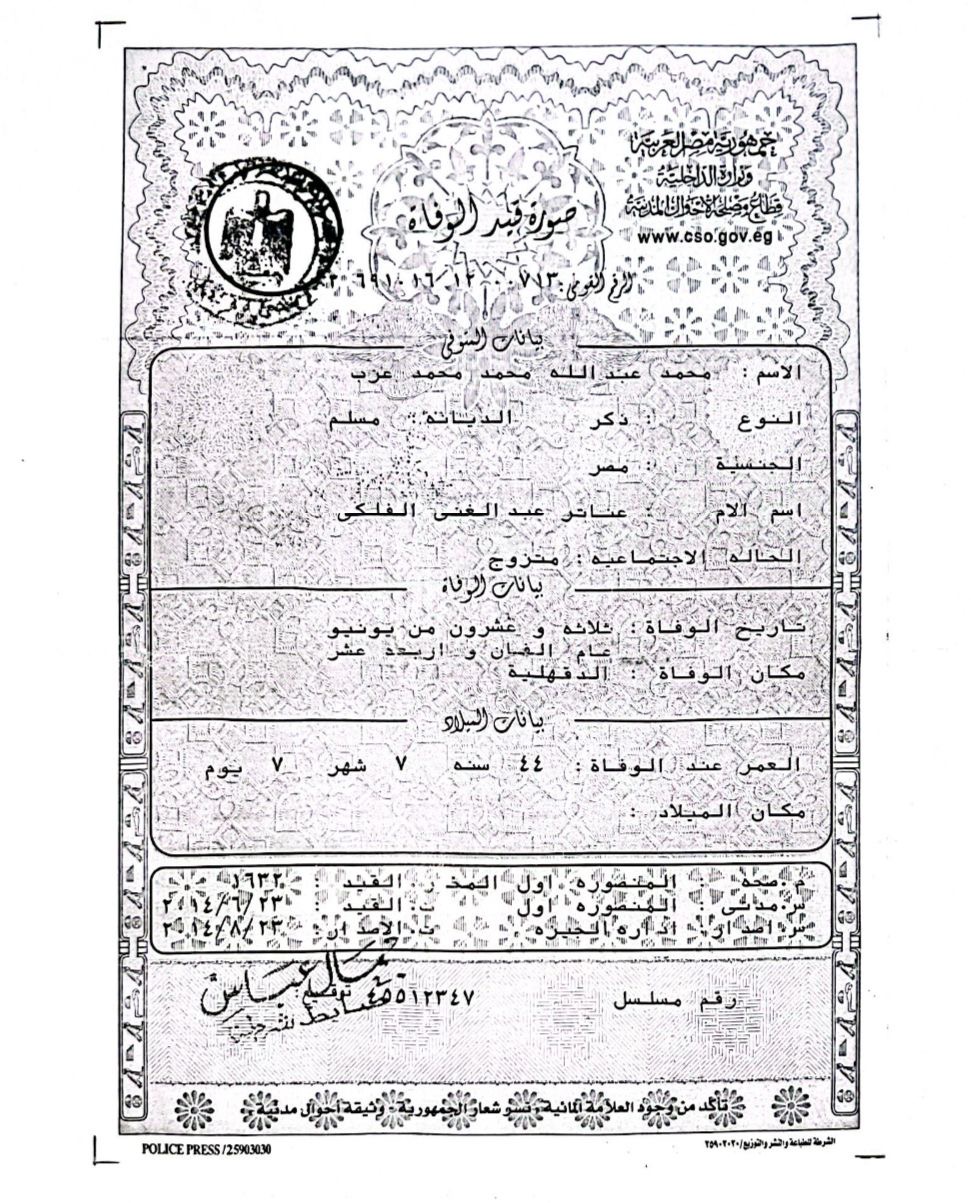 جمهورية مصر العربية
وزارة الداخلية
قطاع مصلحة الأحوال المدنية
www.cso.gov.eg
صورة قيد الوفاة
الرقم القومى:
بيانات المتوفى
الاسم : محمد عبد الله محمد محمد عزب
النوع : ذكر الديانه: مسلم
الجنسية : مصر
اسم الام : عبد الغنى الفلكى
الحاله الاجتماعيه: متزوج
بيانات الوفاة
تاريخ الوفاة: ثلاثه و عشرون من يونيو
عام الفان و اربعه عشر
مكان الوفاة : الدقهلية
بيانات الميلاد
العمر عند الوفاة: ٤٤ سنه ٧ شهر ٧ يوم
مكان الميلاد :
م.صحه : المنصوره اول المخدر القيد : ١٦٣٢
س.مدنى : المنصوره اول ت.القيد : ٢٠١٤/٦/٢٣
س.اصدار: اداره الجيزه ت.الاصدار: ٢٠١٤/٨/٢٣
رقم مسلسل ٤٥٥١٢٣٤٧ توقيع
تأكد من وجود العلامة المائية - نسر شعار الجمهورية - وثيقة أحوال مدنية
POLICE PRESS/25903030
الشرطة للطباعة والنشر والتوزيع/٢٥٩٠٣٠٣٠